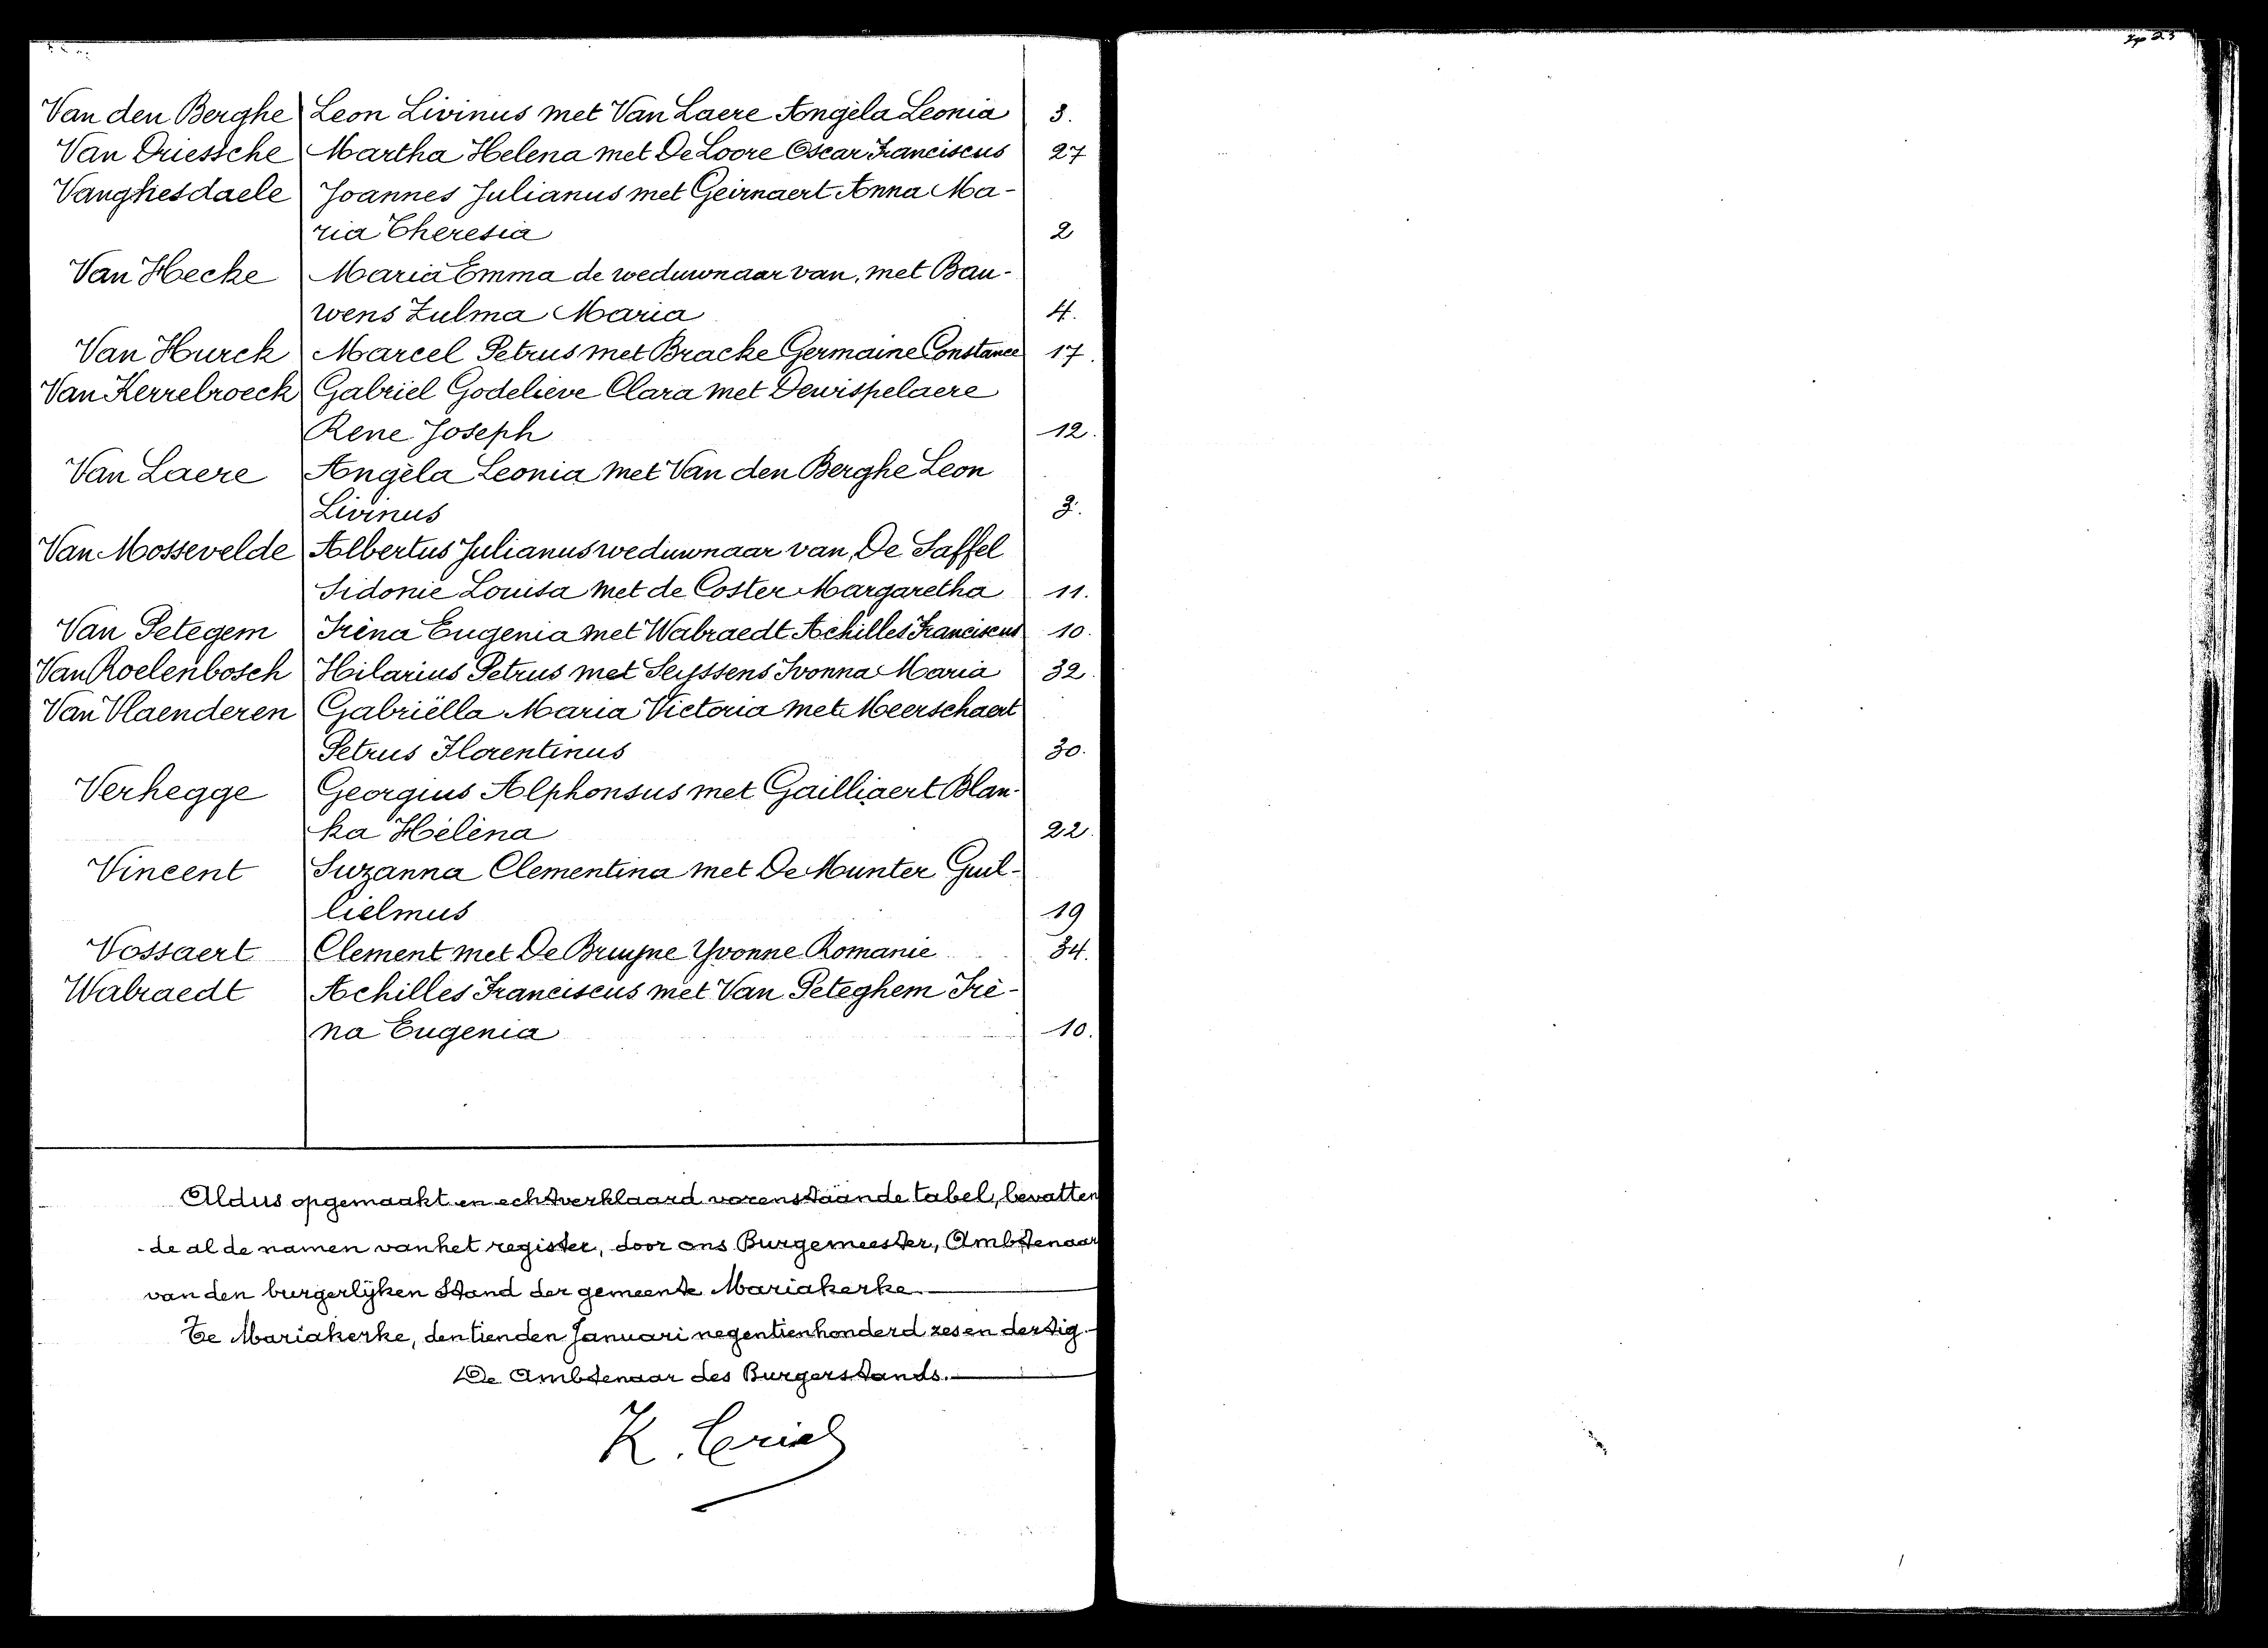 Van den Berghe Leon Livinus met Van Laere Angèla Leonia 3.
Van Driessche Martha Helena met De Loore Oscar Franciscus 27
Vanghesdaele Joannes Julianus met Geirnaert Anna Ma-
ria Theresia 2
Van Hecke Maria Emma de weduwnaar van, met Bau-
wens Zulma Maria 4.
Van Hurck Marcel Petrus met Bracke Germaine Constance 17.
Van Kerrebroeck Gabriel Godelieve Clara met Dewispelaere
Rene Joseph 12.
Van Laere Angèla Leonia met Van den Berghe Leon
Livinus 3.
Van Mossevelde Albertus Julianus weduwnaar van, De Saffel
Sidonie Louisa met de Coster Margaretha 11.
Van Petegem Irèna Eugenia met Wabraedt Achilles Franciscus 10.
Van Roelenbosch Hilarius Petrus met Seyssens Ivonna Maria 32.
Van Vlaenderen Gabriëlla Maria Victoria met Meerschaert
Petrus Florentinus 30.
Verhegge Georgius Alphonsus met Gailliaert Blan-
ka Hélèna 22.
Vincent Suzanna Clementina met De Munter Guil-
lielmus 19
Vossaert Clement met De Bruyne Yvonne Romanie 34.
Wabraedt Achilles Franciscus met Van Peteghem Irè-
na Eugenia 10.
Aldus opgemaakt en echt verklaard vorenstaande tabel, bevatten
-de al de namen van het register, door ons Burgemeester, Ambtenaar
van den burgerlijken Stand der gemeente Mariakerke.
Te Mariakerke, den tienden Januari negentienhonderd zes en dertig.
De Ambtenaar des Burgerstands.